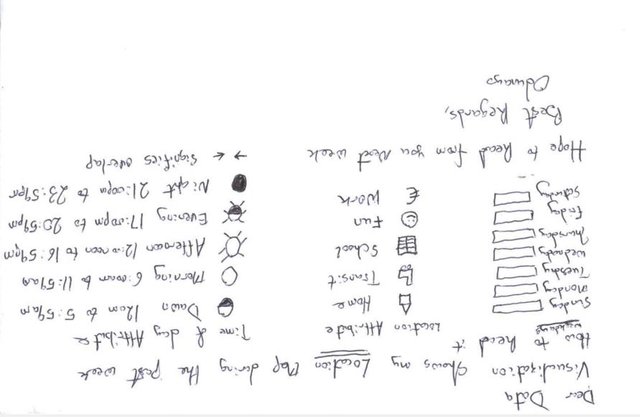 Dear Data
Visualization Shows my Location Map during the past week
How to Read it
weekdays
Location Attribute
Time of day Attribute
Sunday
Monday
Tuesday
Wednesday
Thursday
Friday
Saturday
Home
Transit
School
Fun
Work
Dawn 12am to 5:59am
Morning 6:00am to 11:59am
Afternoon 12:noon to 16:59pm
Evening 17:00pm to 20:59pm
Night 21:00pm to 23:59pm
→ ← Signifies overlap
Hope to Read from you Next week
Best Regards,